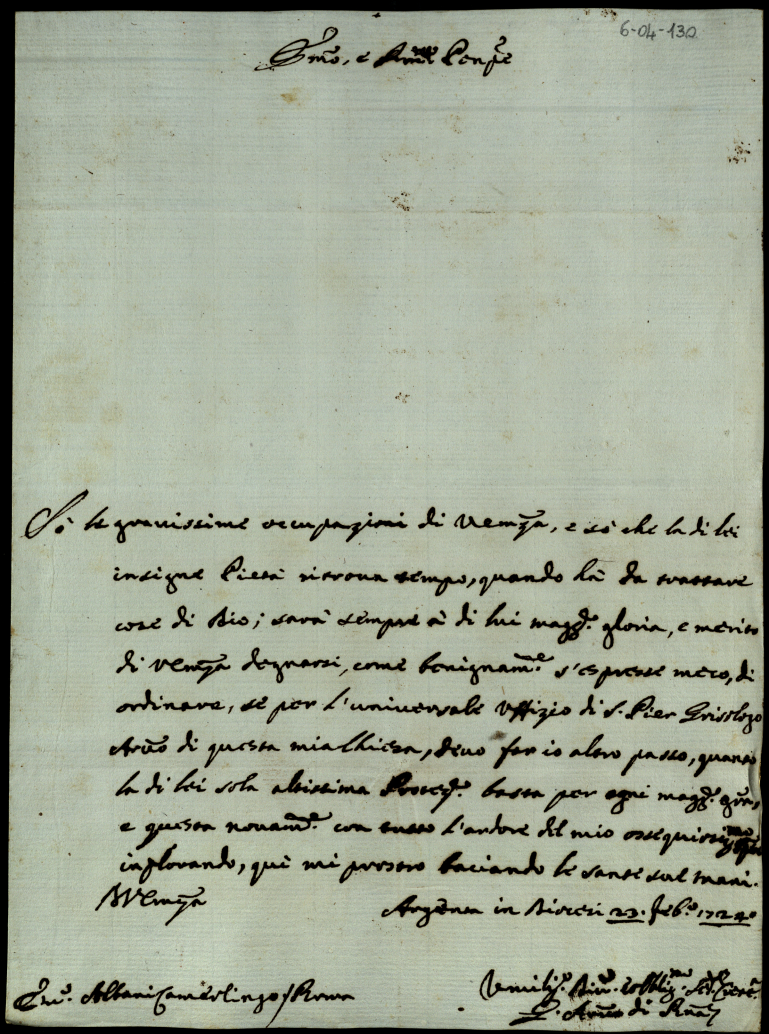 6-04-130
Emo, e Rmo Pnpe
Sò le gravissime occupazioni di Vemza, e sò che la di lei
insigne Pietà ritrova tempo, quando hà da trattare
cose di Dio; sarà sempre à di lui magg.r gloria, e merito
di Vemza degnarsi, come benignam.te s'espresse meco, di
ordinare, se per l'universale Uffizio di S. Pier Grisologo
Arcivo di questa mia Chiesa, devo far io altro passo, quanto
la di lei sola altissima Protez.e basta per ogni magg.r gra,
e questa novam.te con tutto l'ardore del mio ossequiosissimo
implorando, quì mi prostro baciando le sante sue mani.
Di Vemza
Argenta in Diocesi 23. Feb.o 1724
Em. Albani Camerlingo / Roma
Umilis.o Div. Obblig.mo
Arciv di Rna